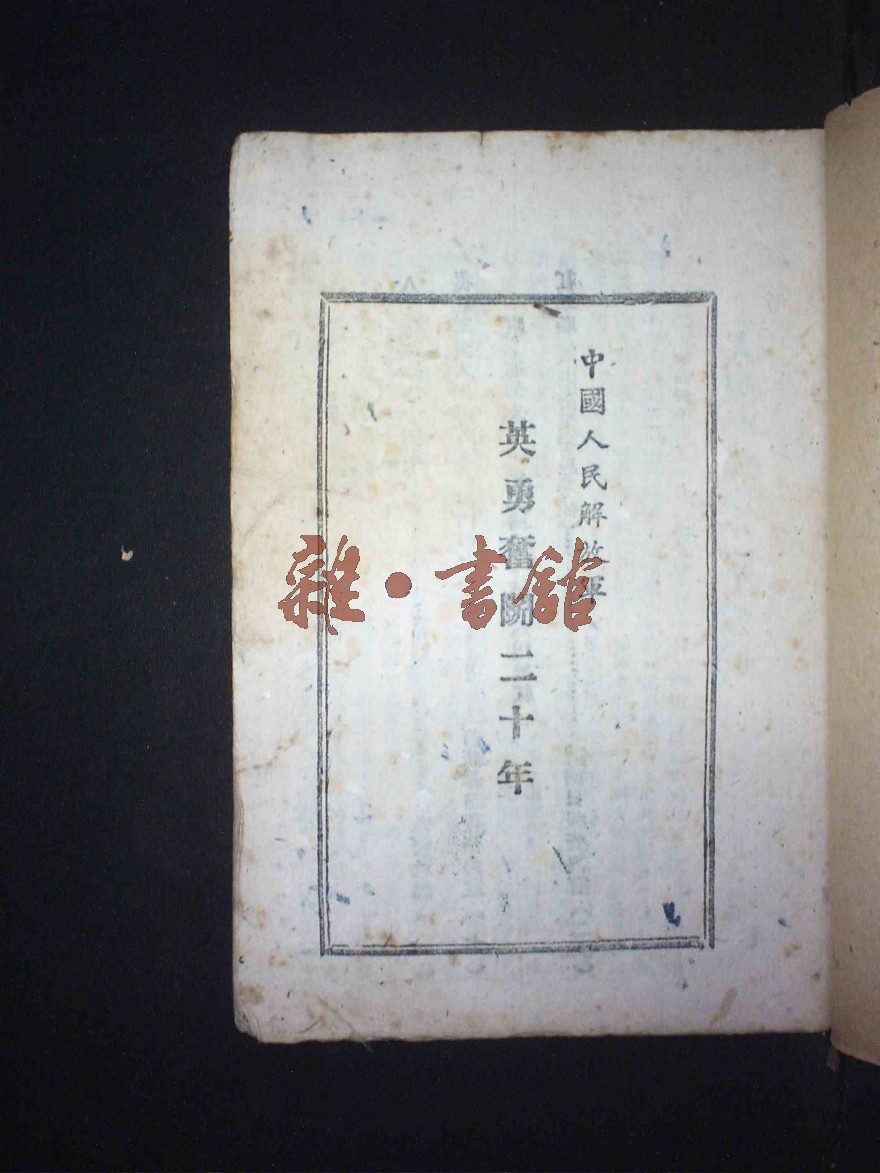 中國人民解放軍
英勇奮鬪二十年
雜·書館